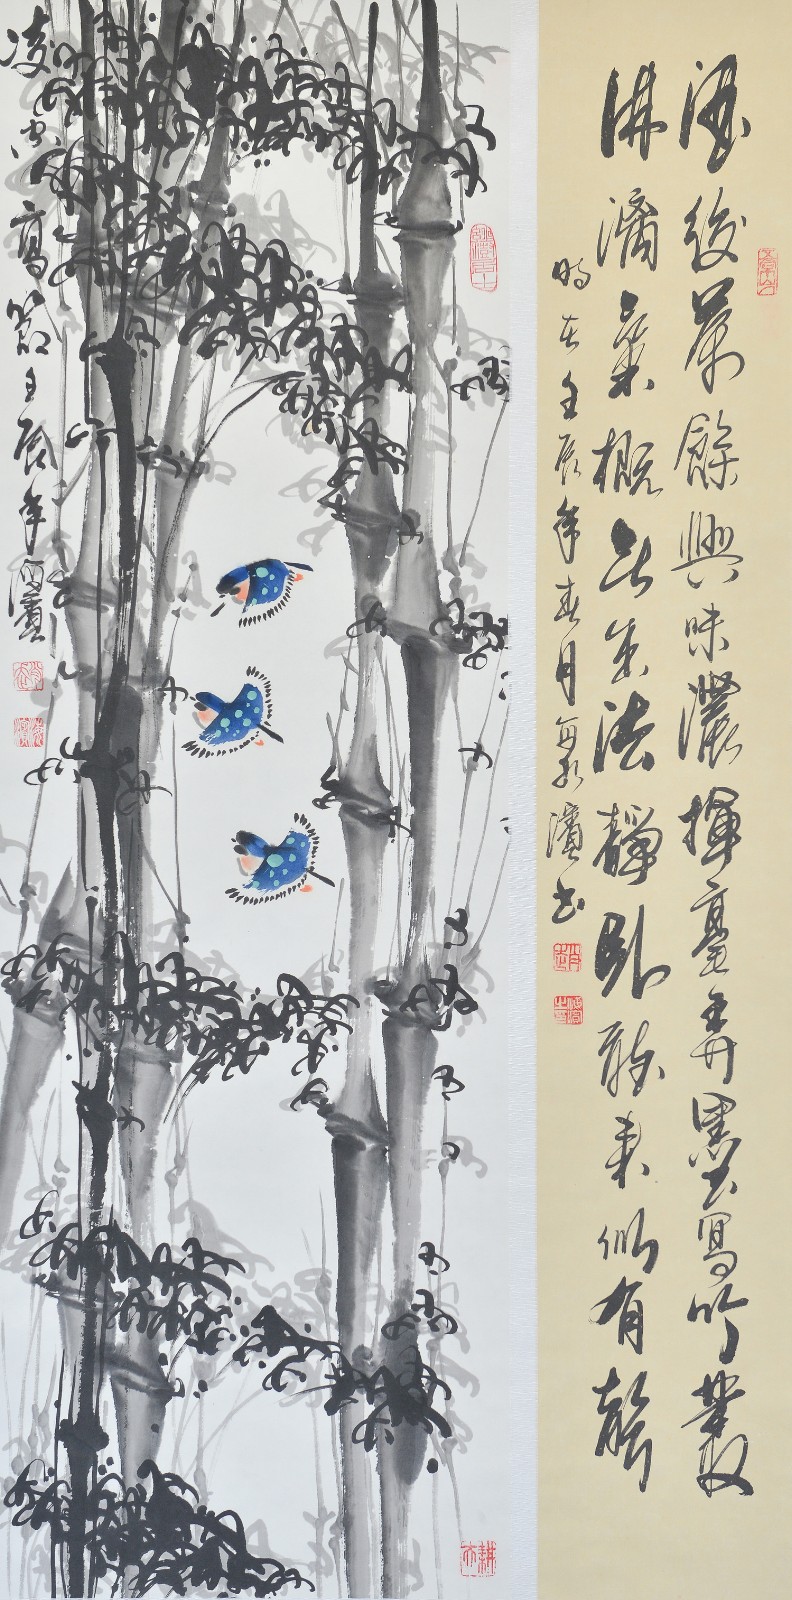 酒後茶餘興味濃揮毫弄墨寫竹叢
淋漓氣概成法靜臥來似有聲
時在壬辰年春月濱書
凌雲高節壬辰年濱